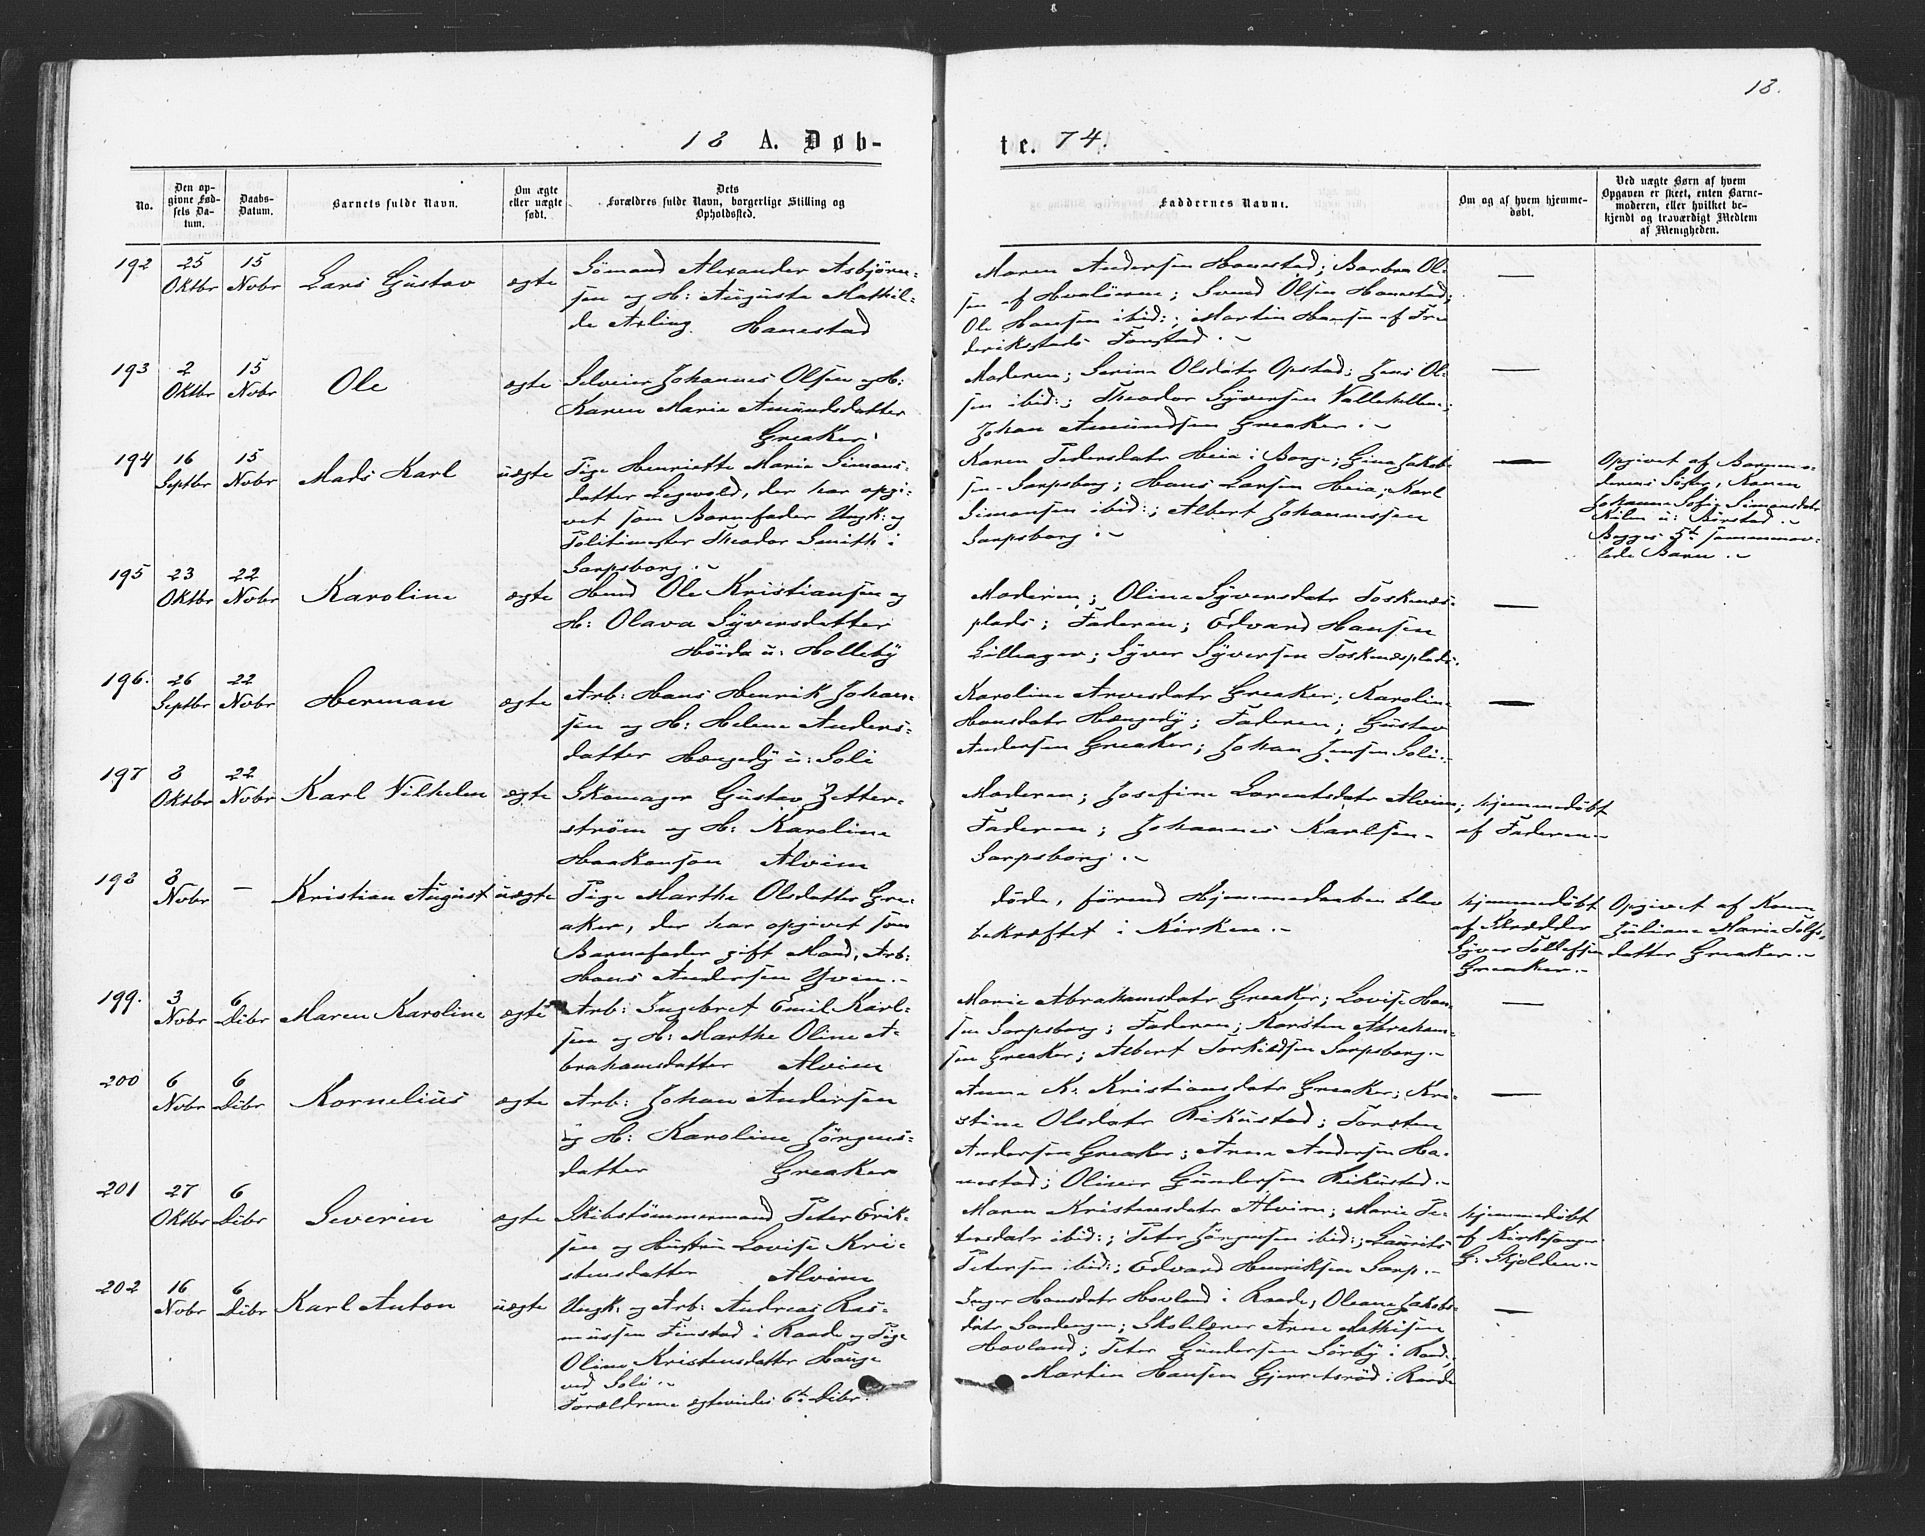 18.
18 A. Døb-
te. 74.
No.
Den op-
givne Fød-
sels Da-
tum.
Daabs-
Datum.
Barnets fulde Navn.
Om ægte
eller uægte
født.
Dets
Forældres fulde Navn, borgerlige Stilling og
Opholdssted.
Faddernes Navne.
Om og af hvem hjemme-
døbt.
Ved uægte Børn af hvem
Opgaven er skeet, enten Barne-
moderen, eller hvilket be-
kjendt og troværdigt Medlem
af Menigheden.
192
25
Oktbr
15
Novbr
Lars Gustav
ægte
Sömand Alexander Asbjörn-
sen og H: Augusta Mathil-
de Arling. Hanestad
Maren Andersen Hanestad; Barbra Ol-
sen af Hvalöerne; Svend Olsen Hanestad;
Ole Hansen ibid:; Martin Hansen af Fre
derikstads Forstad.-
—
193
2
Oktbr
15
Novbr
Ole
ægte
Selveier Johannes Olsen og H:
Karen Marie Amundsdatter
Greaker.
Moderen; Serine Olsdatr Opstad; Jens Ol-
sen ibid:; Theodor Syversen Vallehellen;
Johan Amundsen Greaker.-
—
194
16
Septbr
15
Novbr
Mads Karl
uægte
Pige Henriette Marie Simons-
datter Legvold, der har opgi-
vet som Barnefader Ungk: og
Politimester Theodor Smith i
Sarpsborg.-
Karen Pedersdatr Heia i Borge; Gina Jakob-
sen Sarpsborg; Hans Larsen Heia; Karl
Simonsen ibid:; Albert Johannesen
Sarpsborg.-
—
Opgivet af Barnmo-
derens Söster, Konen
Johanne Sofie Simonsdatr
u: Börstad.-
Begges 5te sammenav-
lede Barn.-
195
23
Oktbr
22
Novbr
Karoline
ægte
Hmd Ole Kristiansen og
H: Olava Syversdatter
Höida u: Holleby
Moderen; Oline Syversdatr Toskenæs-
plads; Faderen; Edvard Hansen
Lilleager; Syver Syversen Toskenæsplads.
—
196.
26
Septbr
22
Novbr
Herman
ægte
Arb: Hans Henrik Johan-
sen og H: Helene Anders-
datter Hængedy u: Soli
Karoline Arvesdatr Greaker; Karoline
Hansdatr Hængedy; Faderen; Gustav
Andersen Greaker; Johan Jensen Soli.-
—
197
8
Oktbr
22
Novbr
Karl Vilhelm
ægte
Skomager Gustav Zetter-
ström og H: Karoline
Haakonson Alvim
Moderen; Josefine Lorentsdatr Alvim;
Faderen; Johannes Karlsen
Sarpsborg.-
Hjemmedöbt
af Faderen.-
198
8
Novbr
—
Kristian August
uægte
Pige Marthe Olsdatter Gre-
aker, der har opgivet som
Barnefader gift Mand, Arb:
Hans Andersen Yven.-
döde, förend Hjemmedaaben blev
bekræftet i Kirken.-
Hjemmedöbt
af Skrædder
Syver Tollefsen
Greaker.-
Opgivet af Konen
Juliane Marie Tolfs-
datter Greaker.-
199.
3
Novbr
6
Dcbr
Maren Karoline
ægte
Arb: Ingebret Emil Karl-
sen og H: Marthe Oline A-
brahamsdatter Alvim
Marie Abrahamsdatr Greaker; Lovise Han-
sen Sarpsborg; Faderen; Karsten Abraham-
sen Greaker; Albert Torkildsen Sarpsborg.-
—
200
6
Novbr
6
Dcbr
Kornelius
ægte
Arb: Johan Andersen
og H: Karoline Jörgens-
datter Greaker
Anne K: Kristiansdatr Greaker; Kri-
stine Olsdatr Rikustad; Torsten
Andersen Greaker; Arne Andersen Ha-
nestad; Oliver Gundersen Rikustad.-
—
201
27
Oktbr
6
Dcbr
Severin
ægte
Skibstömmermand Peter Erik-
sen og Hustru Lovise Kri-
stensdatter Alvim
Maren Kristensdatr Alvim; Marie Pe-
tersdatr ibid:; Peter Jörgensen ibid:; Laurits
Petersen ibid:; Edvard Henriksen Sarp.-
Hjemmedöbt
af Kirkesanger
G: Skjolden.-
202
16
Novbr
6
Dcbr
Karl Anton
uægte
Ungk: og Arb: Andreas Ras-
mussen Finstad i Raade og Pige
Oline Kristensdatter Hauge
ved Soli.-
Forældrene ægteviedes 6te Dcbr.
Inger Hansdatr Hovland i Raade; Oleane Jakobs-
datr Sandengen; Skolelærer Arne Mathisen
Hovland; Peter Gundersen Sörby i Raade;
Martin Hansen Gjerretsröd i Raade
—